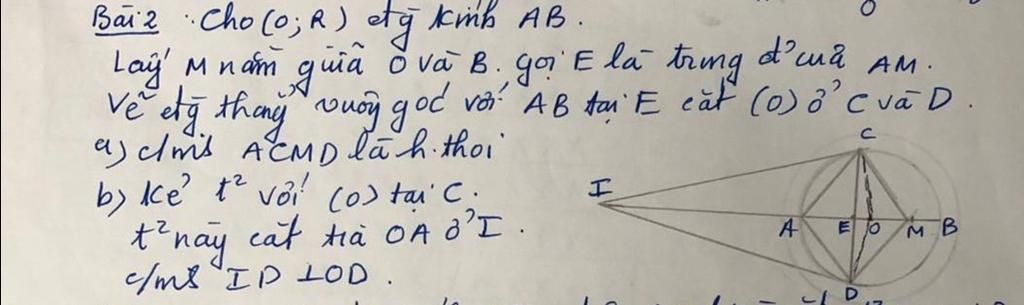 Bài 2 : Cho (O; R) đg kính AB.
Lấy M nằm giữa O và B. gọi E là trung đ' của AM.
Vẽ đg thẳng vuông góc với AB tại E cắt (O) ở C và D.
a) c/m: ACMD là h.thoi
b) kẻ t² với (O) tại C.
t² này cắt tia OA ở I.
c/m: ID ⊥ OD.
C
I
A E O M B
D